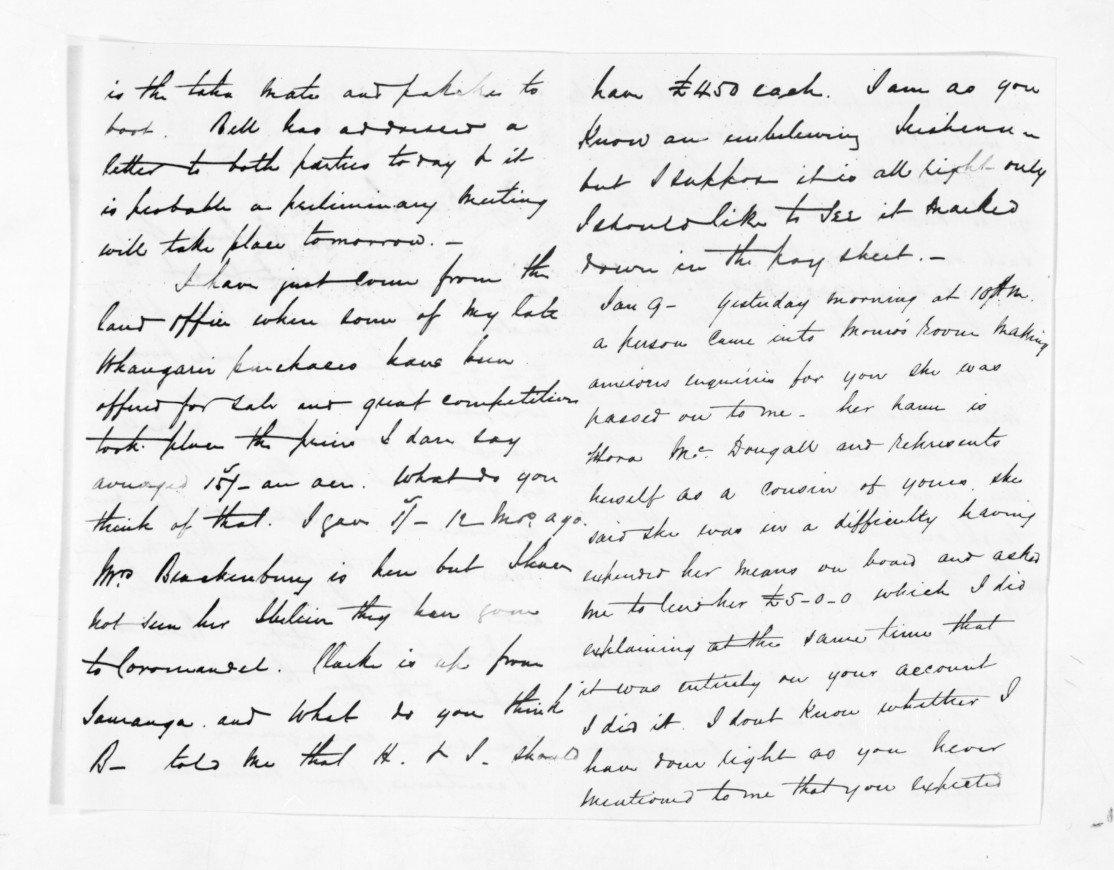 is the take mate and pakeha to
boot. Bell has addressed a
letter to both parties today & it
is probable a preliminary meeting
will take place tomorrow. –
I have just come from the
land office when some of my late
Whangarei purchases have been
offered for sale and great competition
took place the price I dare say
averaged 15/- an acre. What do you
think of that. I gave 5/- 12 Mos. ago.
Mrs Brackenbury is here but I have
not seen her I believe they have gone
to Coromandel. Clarke is up from
Tauranga. and what do you think
B– told me that H. & I. should
have £450 each. I am as you
know an unbelieving
but I suppose it is all right only
I should like to see it marked
down in the pay sheet. –
Jan 9 – Yesterday morning at 10 A.M.
a person came into Monro's Room making
anxious inquiries for you she was
passed on to me – her name is
Flora McDougall and represents
herself as a cousin of yours. she
said she was in a difficulty having
expended her means on board and asked
me to lend her £5-0-0 which I did
explaining at the same time that
it was entirely on your account
I did it. I dont know whether I
have done right as you never
mentioned to me that you expected